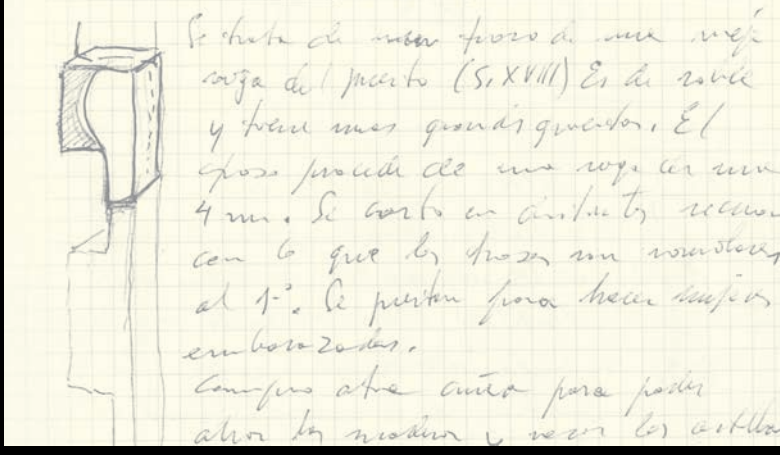 Se trata de un trozo de una vieja
viga del puerto (S. XVIII) Es de roble
y tiene unas grandes grietas. El
trozo procede de una viga de unos
4 m. Se cortó en distintos
con lo que los trozos son
al 1º. Se prestan para hacer mujeres
embarazadas.
Compro otra cuña para poder
abrir los maderos y sacar las astillas